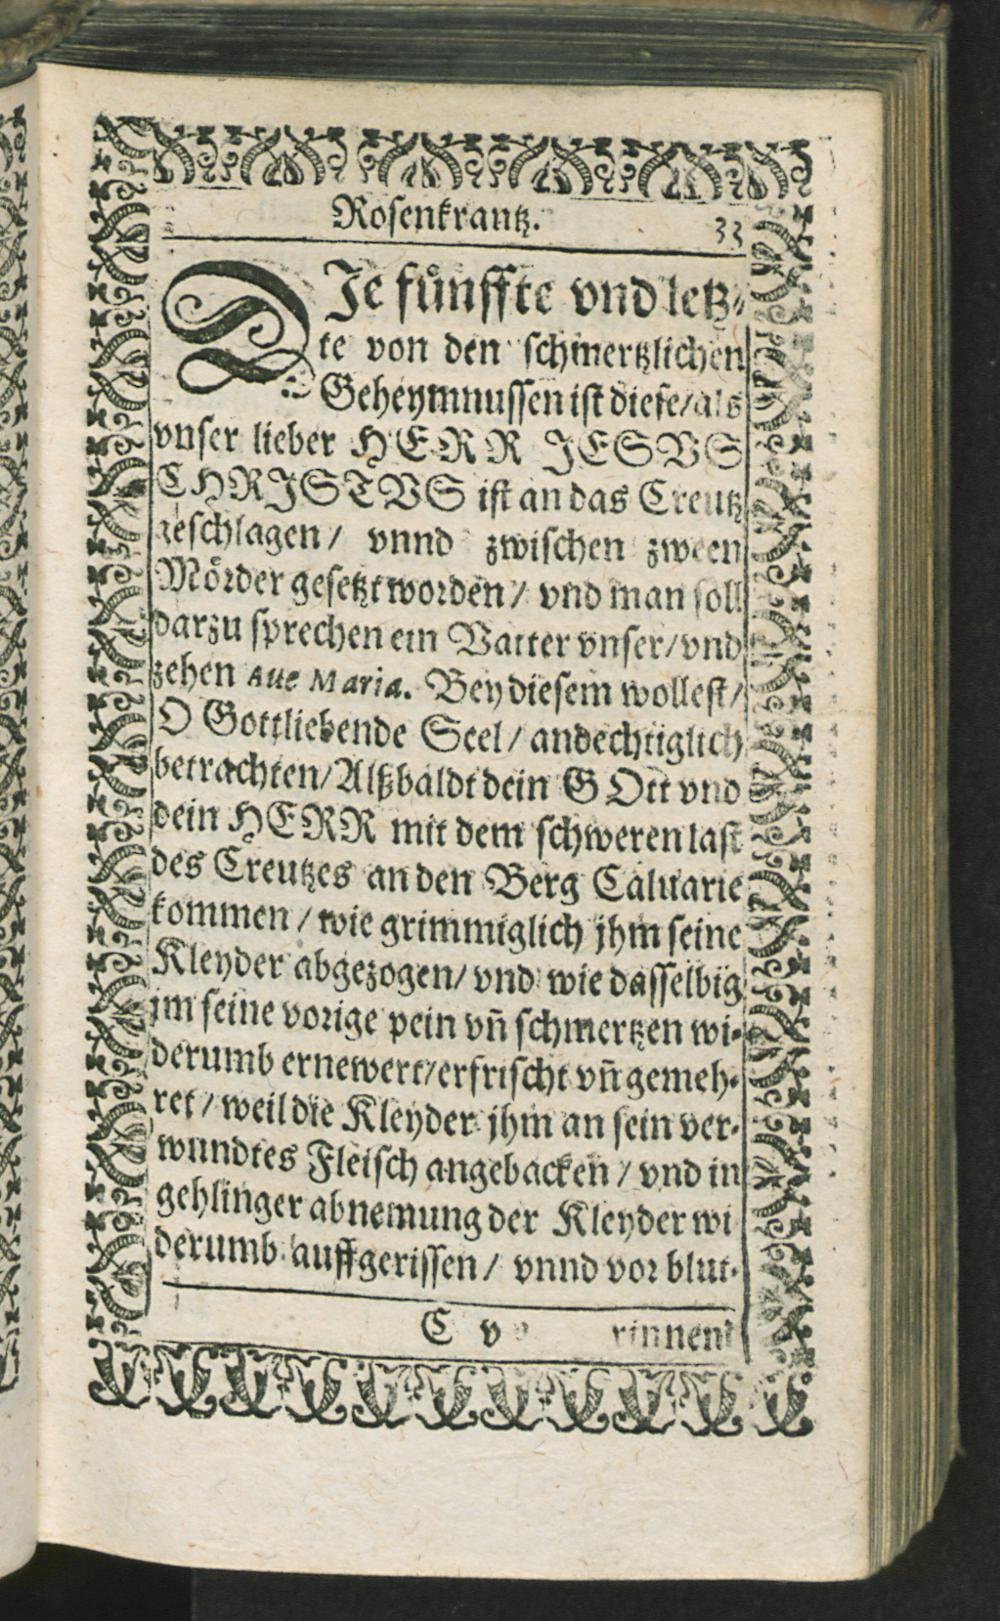 Rosenkrantz. 33
DJe fünffte vnd letz-
te von den schmertzlichen
Geheymnussen ist diese/als
vnser lieber HERR JESVS
CHRJSTVS ist an das Creutz
geschlagen/ vnnd zwischen zween
Mörder gesetzt worden/ vnd man soll
darzu sprechen ein Vatter vnser/vnd
zehen Aue Maria. Bey diesem wollest/
O Gottliebende Seel/ andechtiglich
betrachten/Alßbaldt dein GOtt vnd
dein HERR mit dem schweren last
des Creutzes an den Berg Caluarie
kommen/wie grimmiglich jhm seine
Kleyder abgezogen/ vnd wie dasselbig
jm seine vorige pein vñ schmertzen wi-
derumb ernewert/erfrischt vñ gemeh-
ret/weil die Kleyder jhm an sein ver-
wundtes Fleisch angebacken/ vnd in
gehlinger abnemung der Kleyder wi
derumb auffgerissen/ vnnd vor blut-
C v rinnent